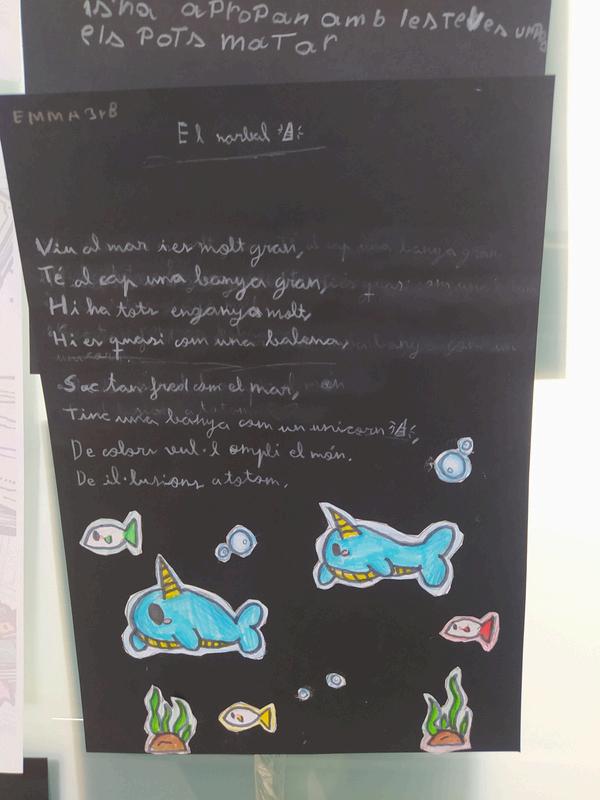 is'ha apropan amb les teves
els pots matar
EMMA 3rB
El narbal
Viu al mar i es molt gran,
Té al cap una banya gran,
Hi ha tots enganya molt,
Hi es quasi com una balena,
Soc tan fred com el mar,
Tinc una banya com un unicorn,
De colors vul·l ompli el món.
De il·lusions a totom.